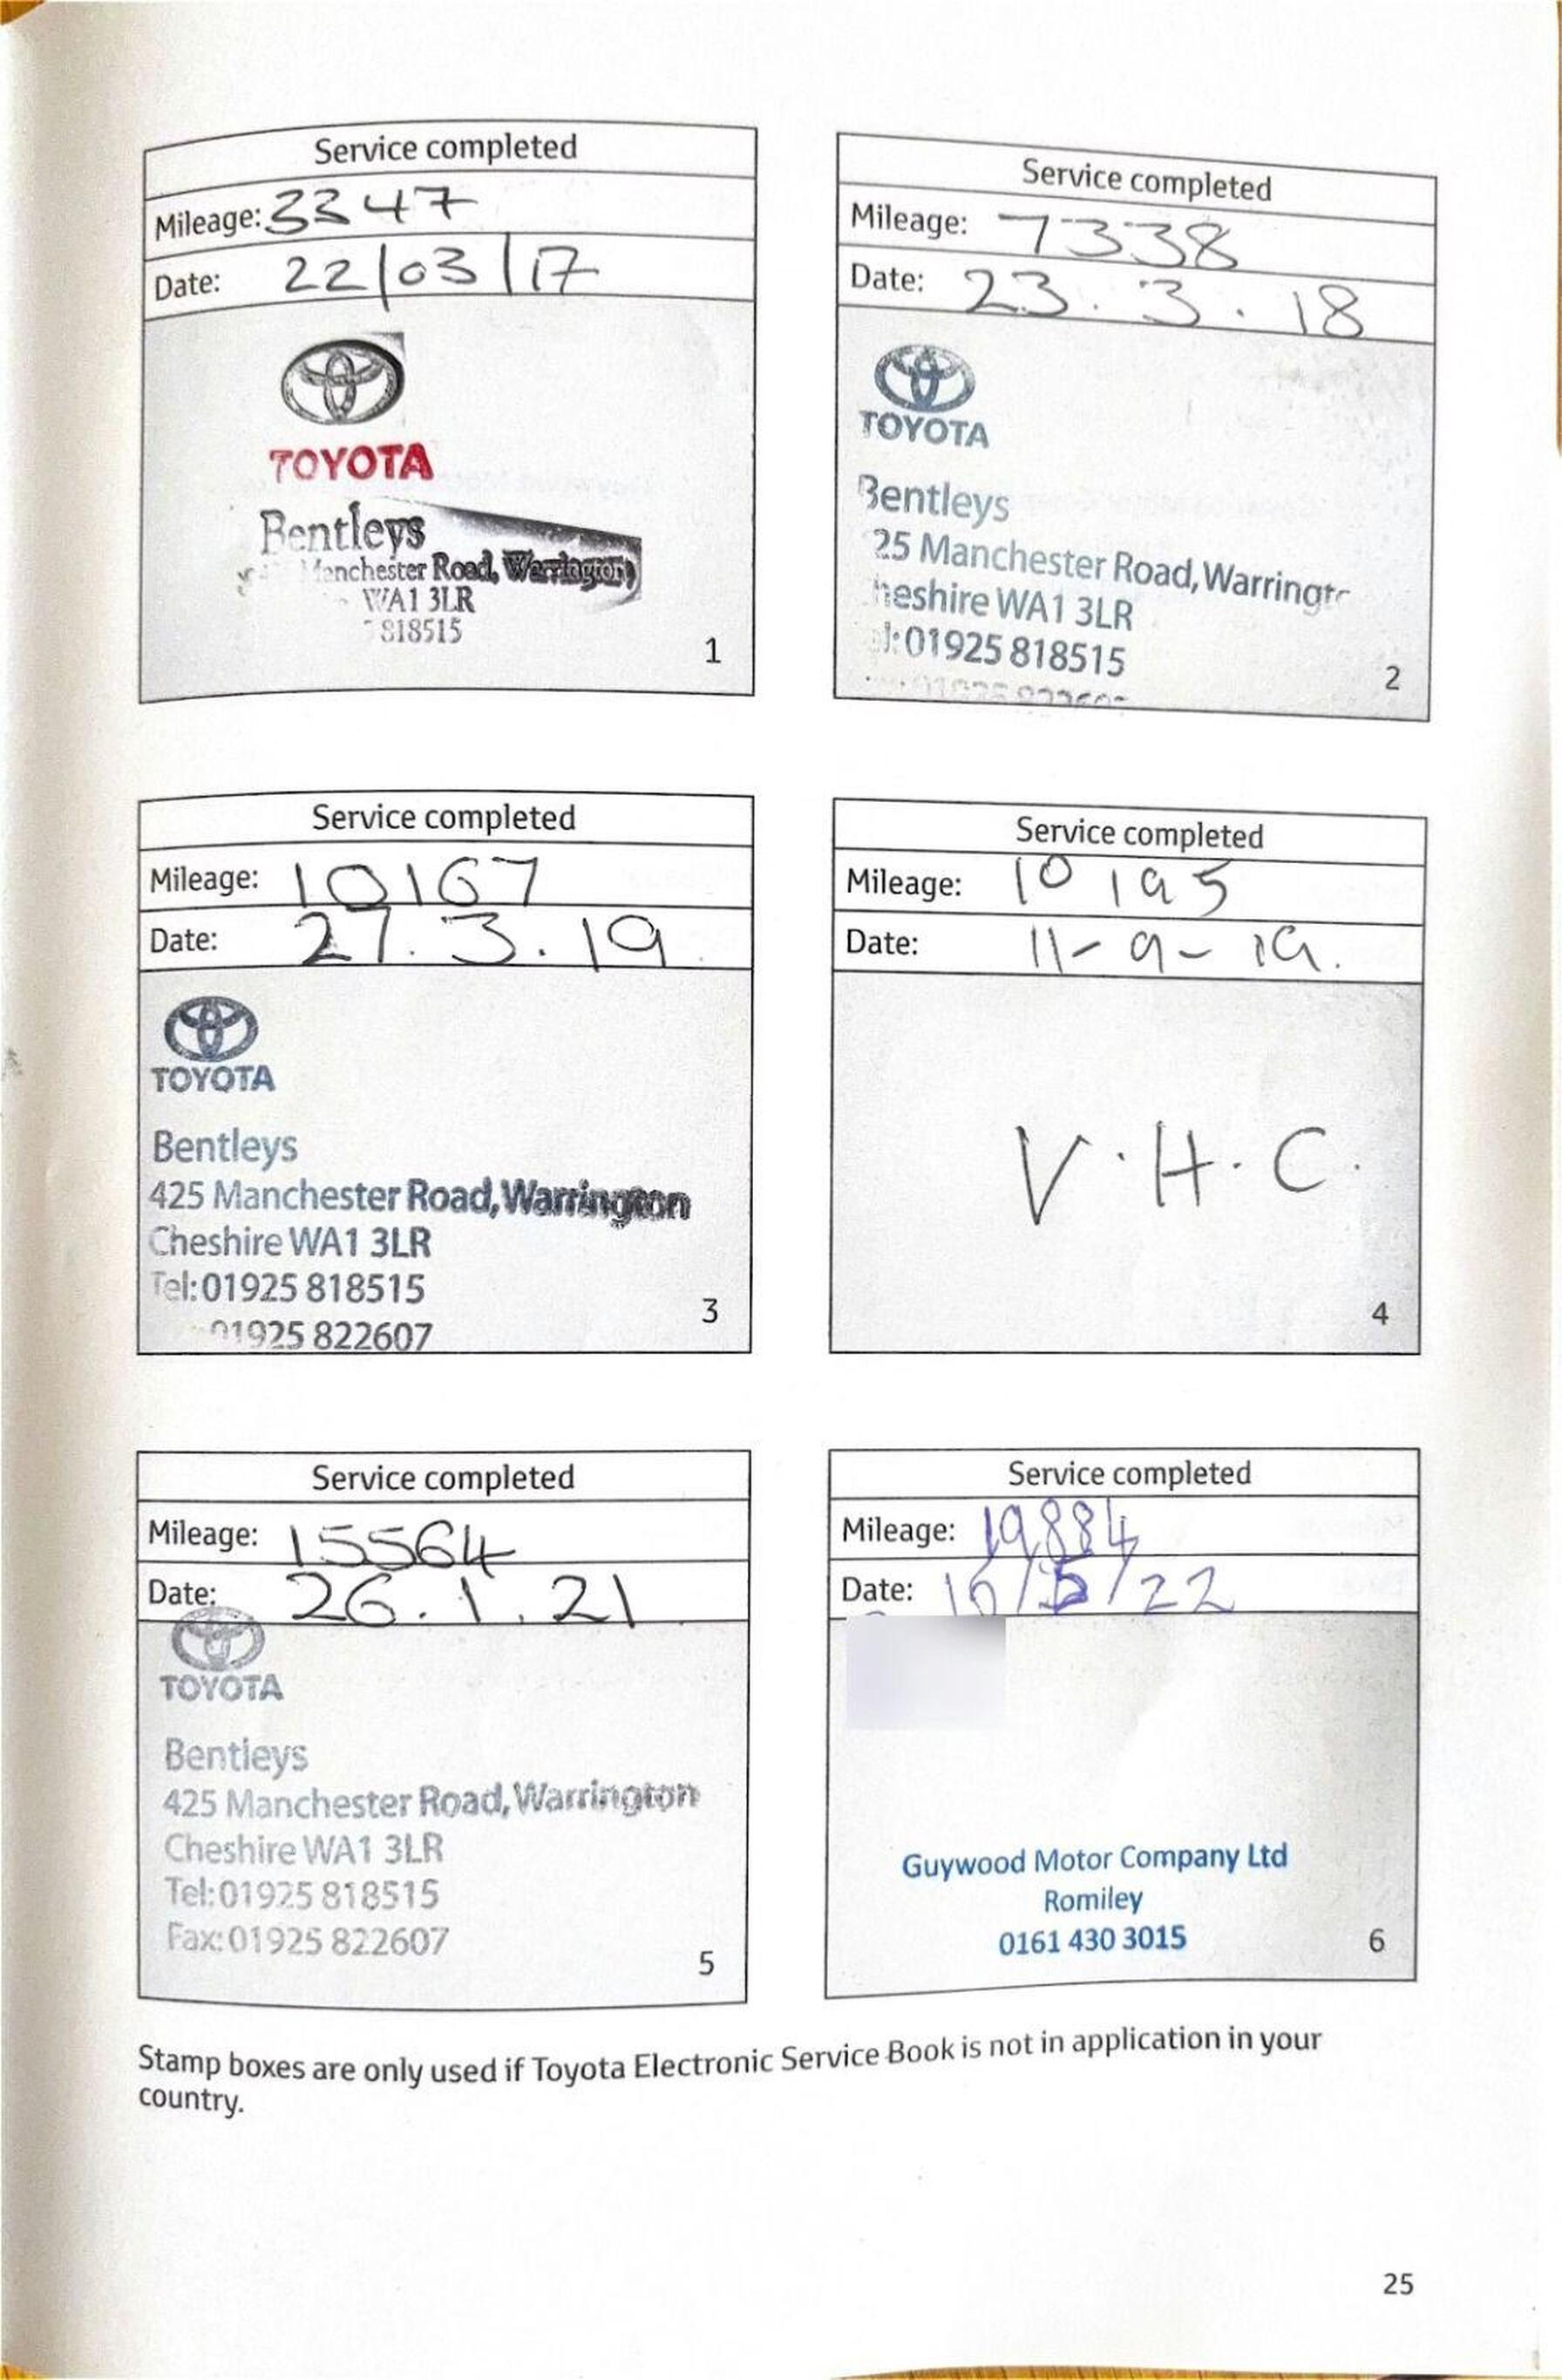 Service completed
Mileage: 3347
Date: 22/03/17
TOYOTA
Bentleys
Manchester Road, Warrington
WA1 3LR
818515
1
Service completed
Mileage: 7338
Date: 23.3.18
TOYOTA
Bentleys
25 Manchester Road, Warringt
heshire WA1 3LR
l:01925 818515
2
Service completed
Mileage: 10167
Date: 27.3.19
TOYOTA
Bentleys
425 Manchester Road, Warrington
Cheshire WA1 3LR
Tel:01925 818515
01925 822607
3
Service completed
Mileage: 10195
Date: 11-9-19.
V.H.C.
4
Service completed
Mileage: 15564
Date: 26.1.21
TOYOTA
Bentleys
425 Manchester Road, Warrington
Cheshire WA1 3LR
Tel:01925 818515
Fax:01925 822607
5
Service completed
Mileage: 19,884
Date: 16/5/22
Guywood Motor Company Ltd
Romiley
0161 430 3015
6
Stamp boxes are only used if Toyota Electronic Service Book is not in application in your
country.
25